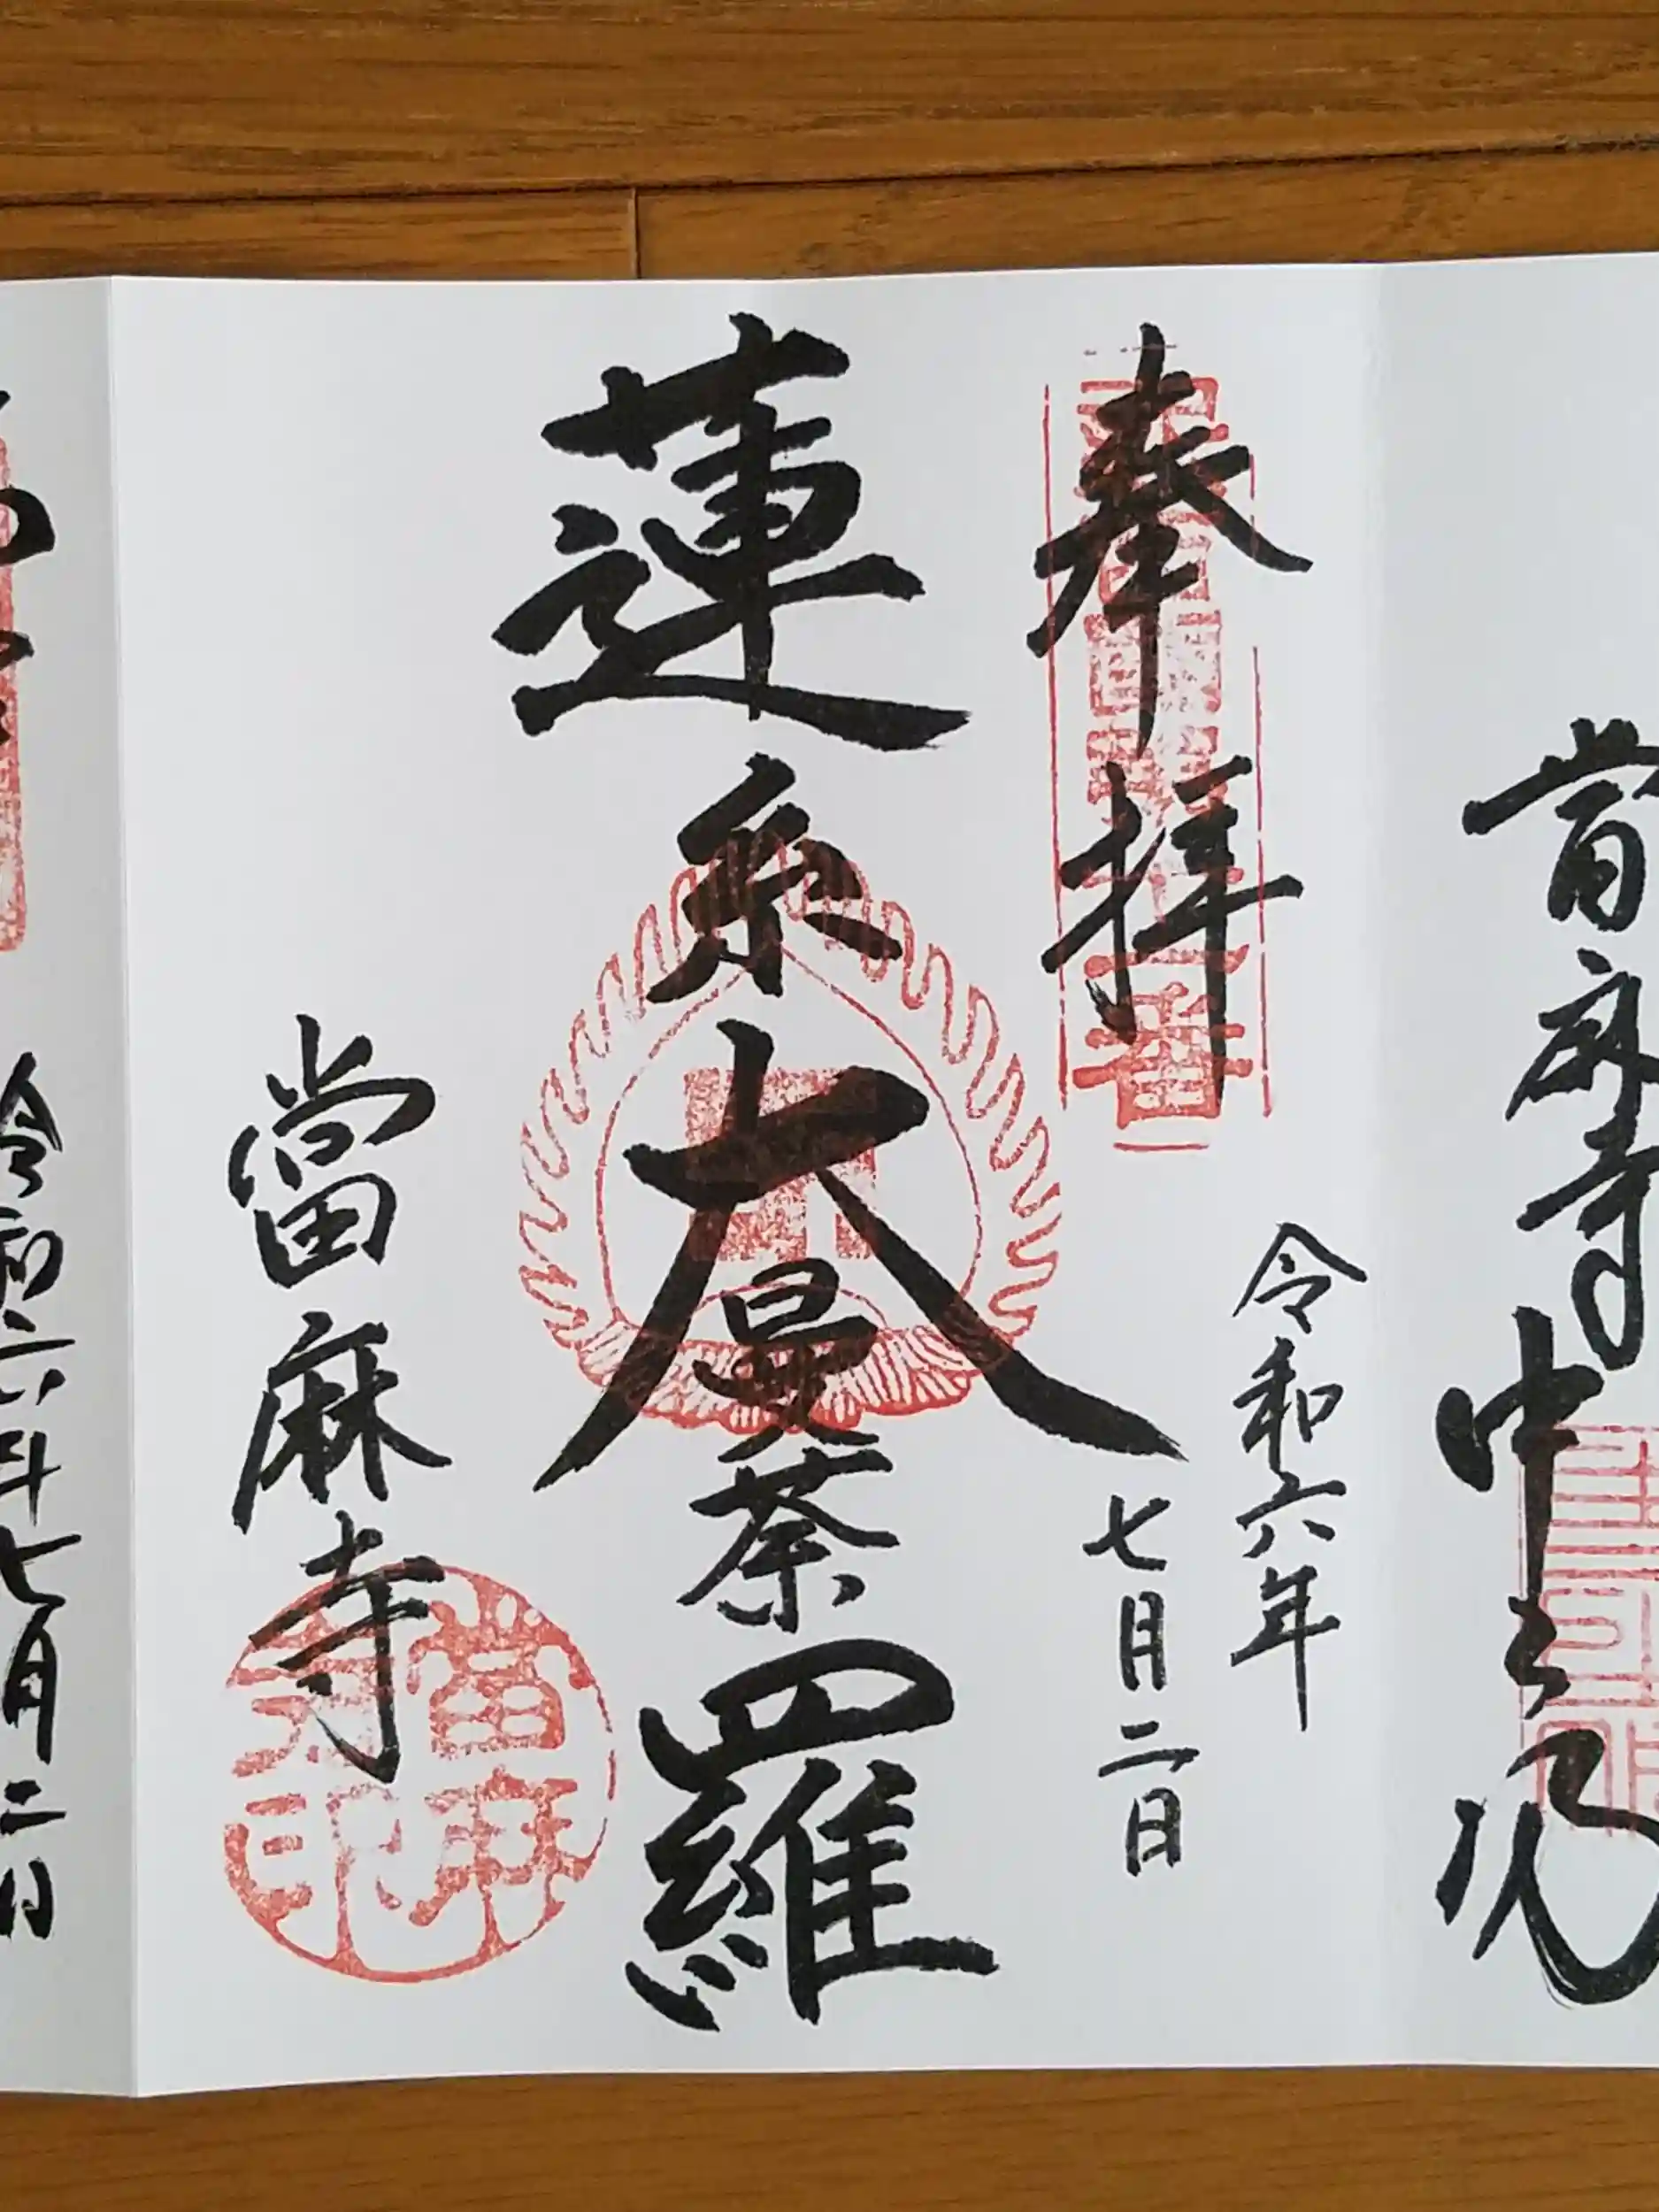 當麻寺
中之坊
奉拝
令和六年
七月二日
蓮糸大曼荼羅
當麻寺
令和六年七月二日